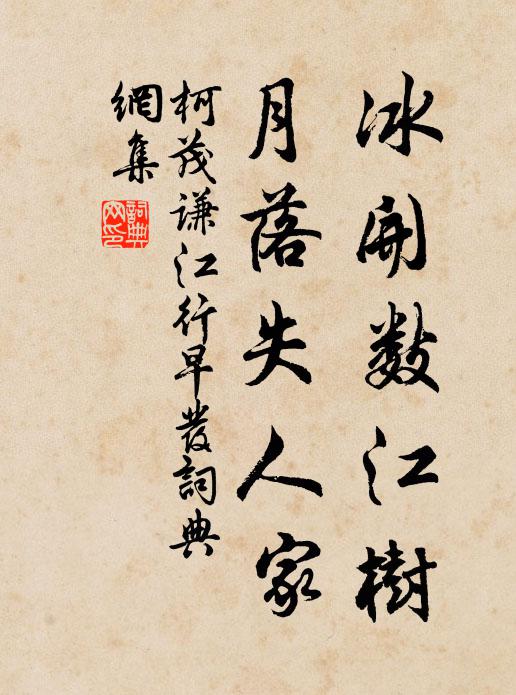 冰開數江樹
月落失人家
柯茂謙江行早發詞典
網集
詞典
网印